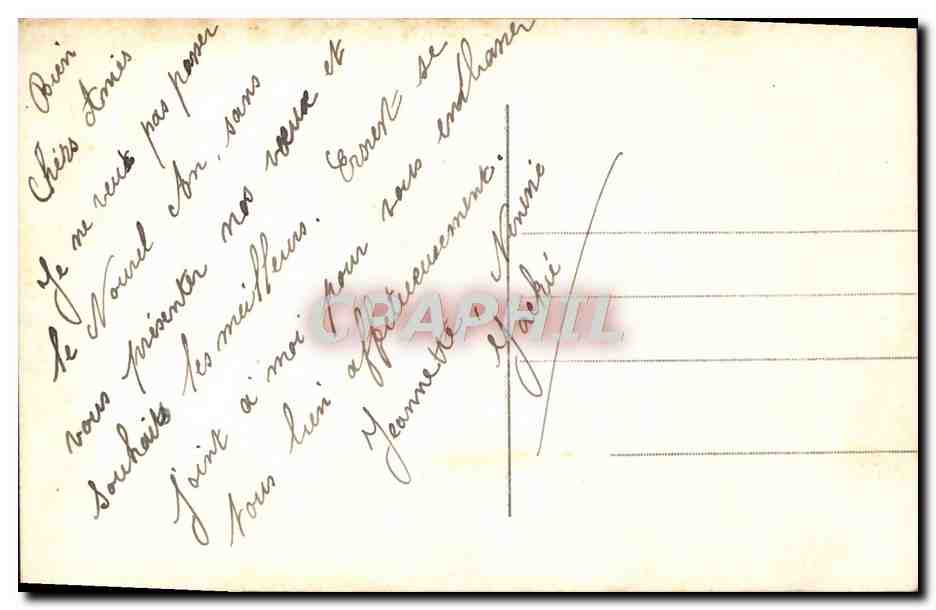 Bien
Chers Amis
Je ne veux pas passer
le Nouvel An, sans
vous présenter nos vœux et
souhaits les meilleurs. Ernest se
joint à moi pour vous embrasser
tous bien affectueusement.
Jeannette Ninine
Jackie
CPAPHIL